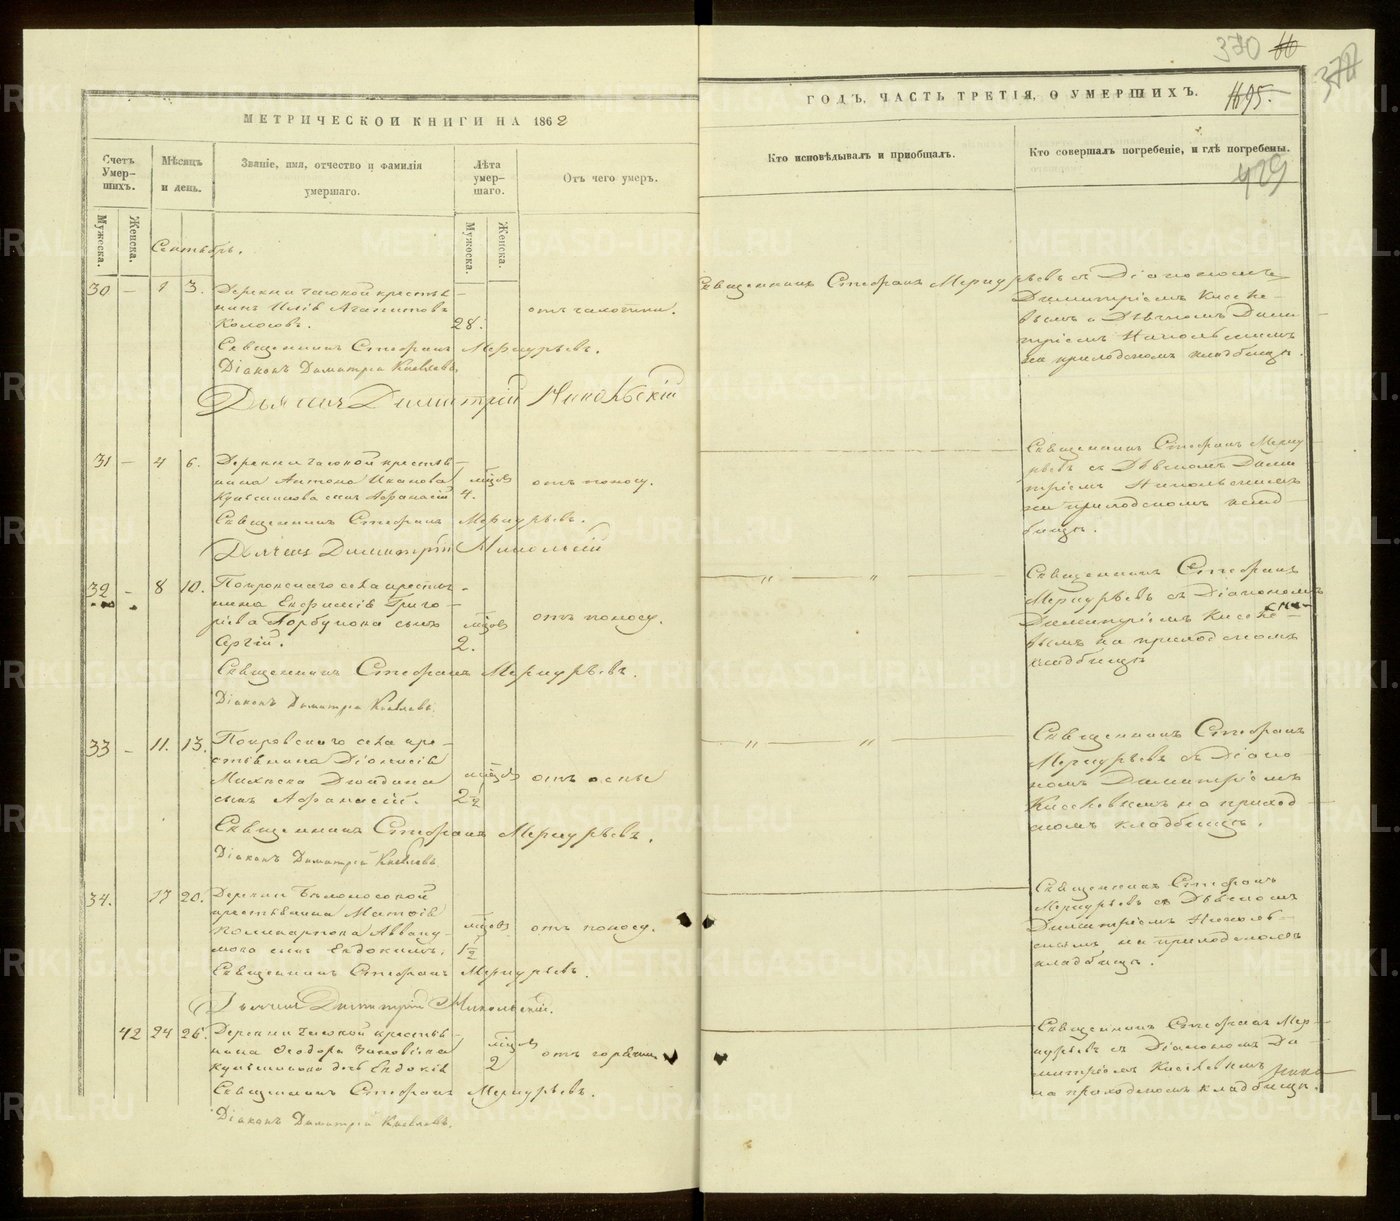 370
МЕТРИЧЕСКОЙ КНИГИ НА 1862
ГОДЪ, ЧАСТЬ ТРЕТІЯ, О УМЕРШИХЪ.
Счетъ Умер-
шихъ.
Мужеска.
Женска.
Мѣсяцъ
и день.
Званіе, имя, отчество и фамилія
умершаго.
Лѣта
умер-
шаго.
Мужеска.
Женска.
Отъ чего умеръ.
Кто исповѣдывалъ и пріобщалъ.
Кто совершалъ погребеніе, и гдѣ погребены.
429
Сентябрь.
30 – 1 3. Деревни крестья-
нинъ Илія Агапитовъ
Колосовъ. 28. отъ чахотки.
Священникъ Стефанъ Меркурьевъ.
Діаконъ Димитрій Киселевъ
Дьячекъ Димитрій Никольскій
Священникъ Стефанъ Меркурьевъ съ Діакономъ
Димитріемъ Киселе-
вымъ и Дьячкомъ Дими-
тріемъ Никольскимъ
на приходскомъ кладбищѣ.
31 – 4 6. Деревни крестья-
нина Антона Иванова
сынъ Афанасій мѣсяц. 4. отъ поносу.
Священникъ Стефанъ Меркурьевъ.
Дьячекъ Димитрій Никольскій
Священникъ Стефанъ Мерку-
рьевъ съ Дьячкомъ Дими-
тріемъ Никольскимъ
на приходскомъ клад-
бищѣ.
32 – 8 10. Покровскаго села крестья-
нина Григо-
рьева Горбунова сынъ
Сергій. мѣсяц. 2. отъ поносу.
Священникъ Стефанъ Меркурьевъ.
Діаконъ Димитрій Киселевъ.
Священникъ Стефанъ
Меркурьевъ съ Діакономъ
Димитріемъ Киселе-
вымъ на приходскомъ
кладбищѣ
33 – 11. 13. Покровскаго села кре-
стьянина Діонисія
сынъ Афанасій. 2 1/2 отъ оспы
Священникъ Стефанъ Меркурьевъ.
Діаконъ Димитрій Киселевъ
Священникъ Стефанъ
Меркурьевъ съ Діако-
номъ Димитріемъ
Киселевымъ на приход-
скомъ кладбищѣ.
34. 17 20. Деревни
крестьянина Матвія
Поликарпова Авваку-
мова сынъ Евдокимъ. 1 1/2 отъ поносу.
Священникъ Стефанъ Меркурьевъ.
Дьячекъ Димитрій Никольскій.
Священникъ Стефанъ
Меркурьевъ съ Дьячкомъ
Димитріемъ Николь-
скимъ на приходскомъ
кладбищѣ.
42 24 26. Деревни крестья-
нина Ѳеодора
дочь Евдокія 2 отъ горячки
Священникъ Стефанъ Меркурьевъ.
Діаконъ Димитрій Киселевъ.
Священникъ Стефанъ Мер-
курьевъ съ Діакономъ Ди-
митріемъ Киселевымъ
на приходскомъ кладбищѣ.
METRIKI.GASO-URAL.RU